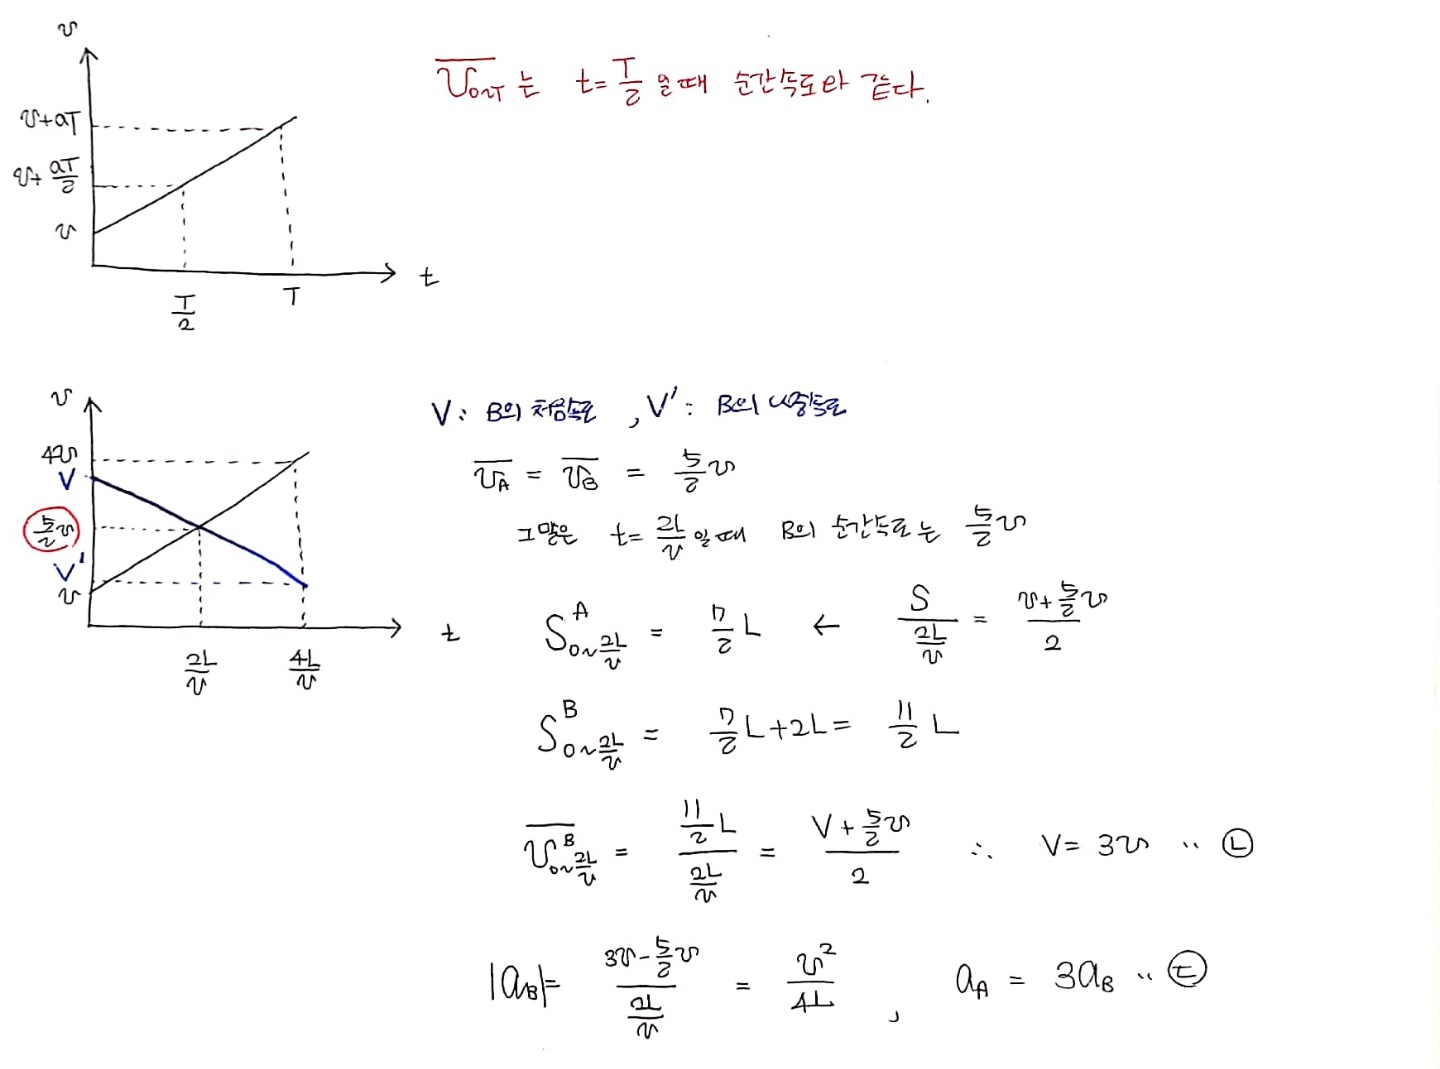 v
v+aT
v+aT/2
v
T/2 T t
v̄₀~T 는 t=T/2 일 때 순간속도와 같다.
v
4v
V
5/2 v
V'
v
2L/v 4L/v t
V : B의 처음속도 , V' : B의 나중속도
v̄A = v̄B = 5/2 v
그 말은 t= 2L/v 일 때 B의 순간속도는 5/2 v
S^A 0~2L/v = 7/2 L ← S/(2L/v) = (v+5/2 v)/2
S^B 0~2L/v = 7/2 L+2L = 11/2 L
v̄^B 0~2L/v = (11/2 L)/(2L/v) = (V+5/2 v)/2 ∴ V= 3v ‥ ㉡
|aB|= (3v-5/2 v)/(2L/v) = v²/4L , aA = 3aB ‥ ㉢